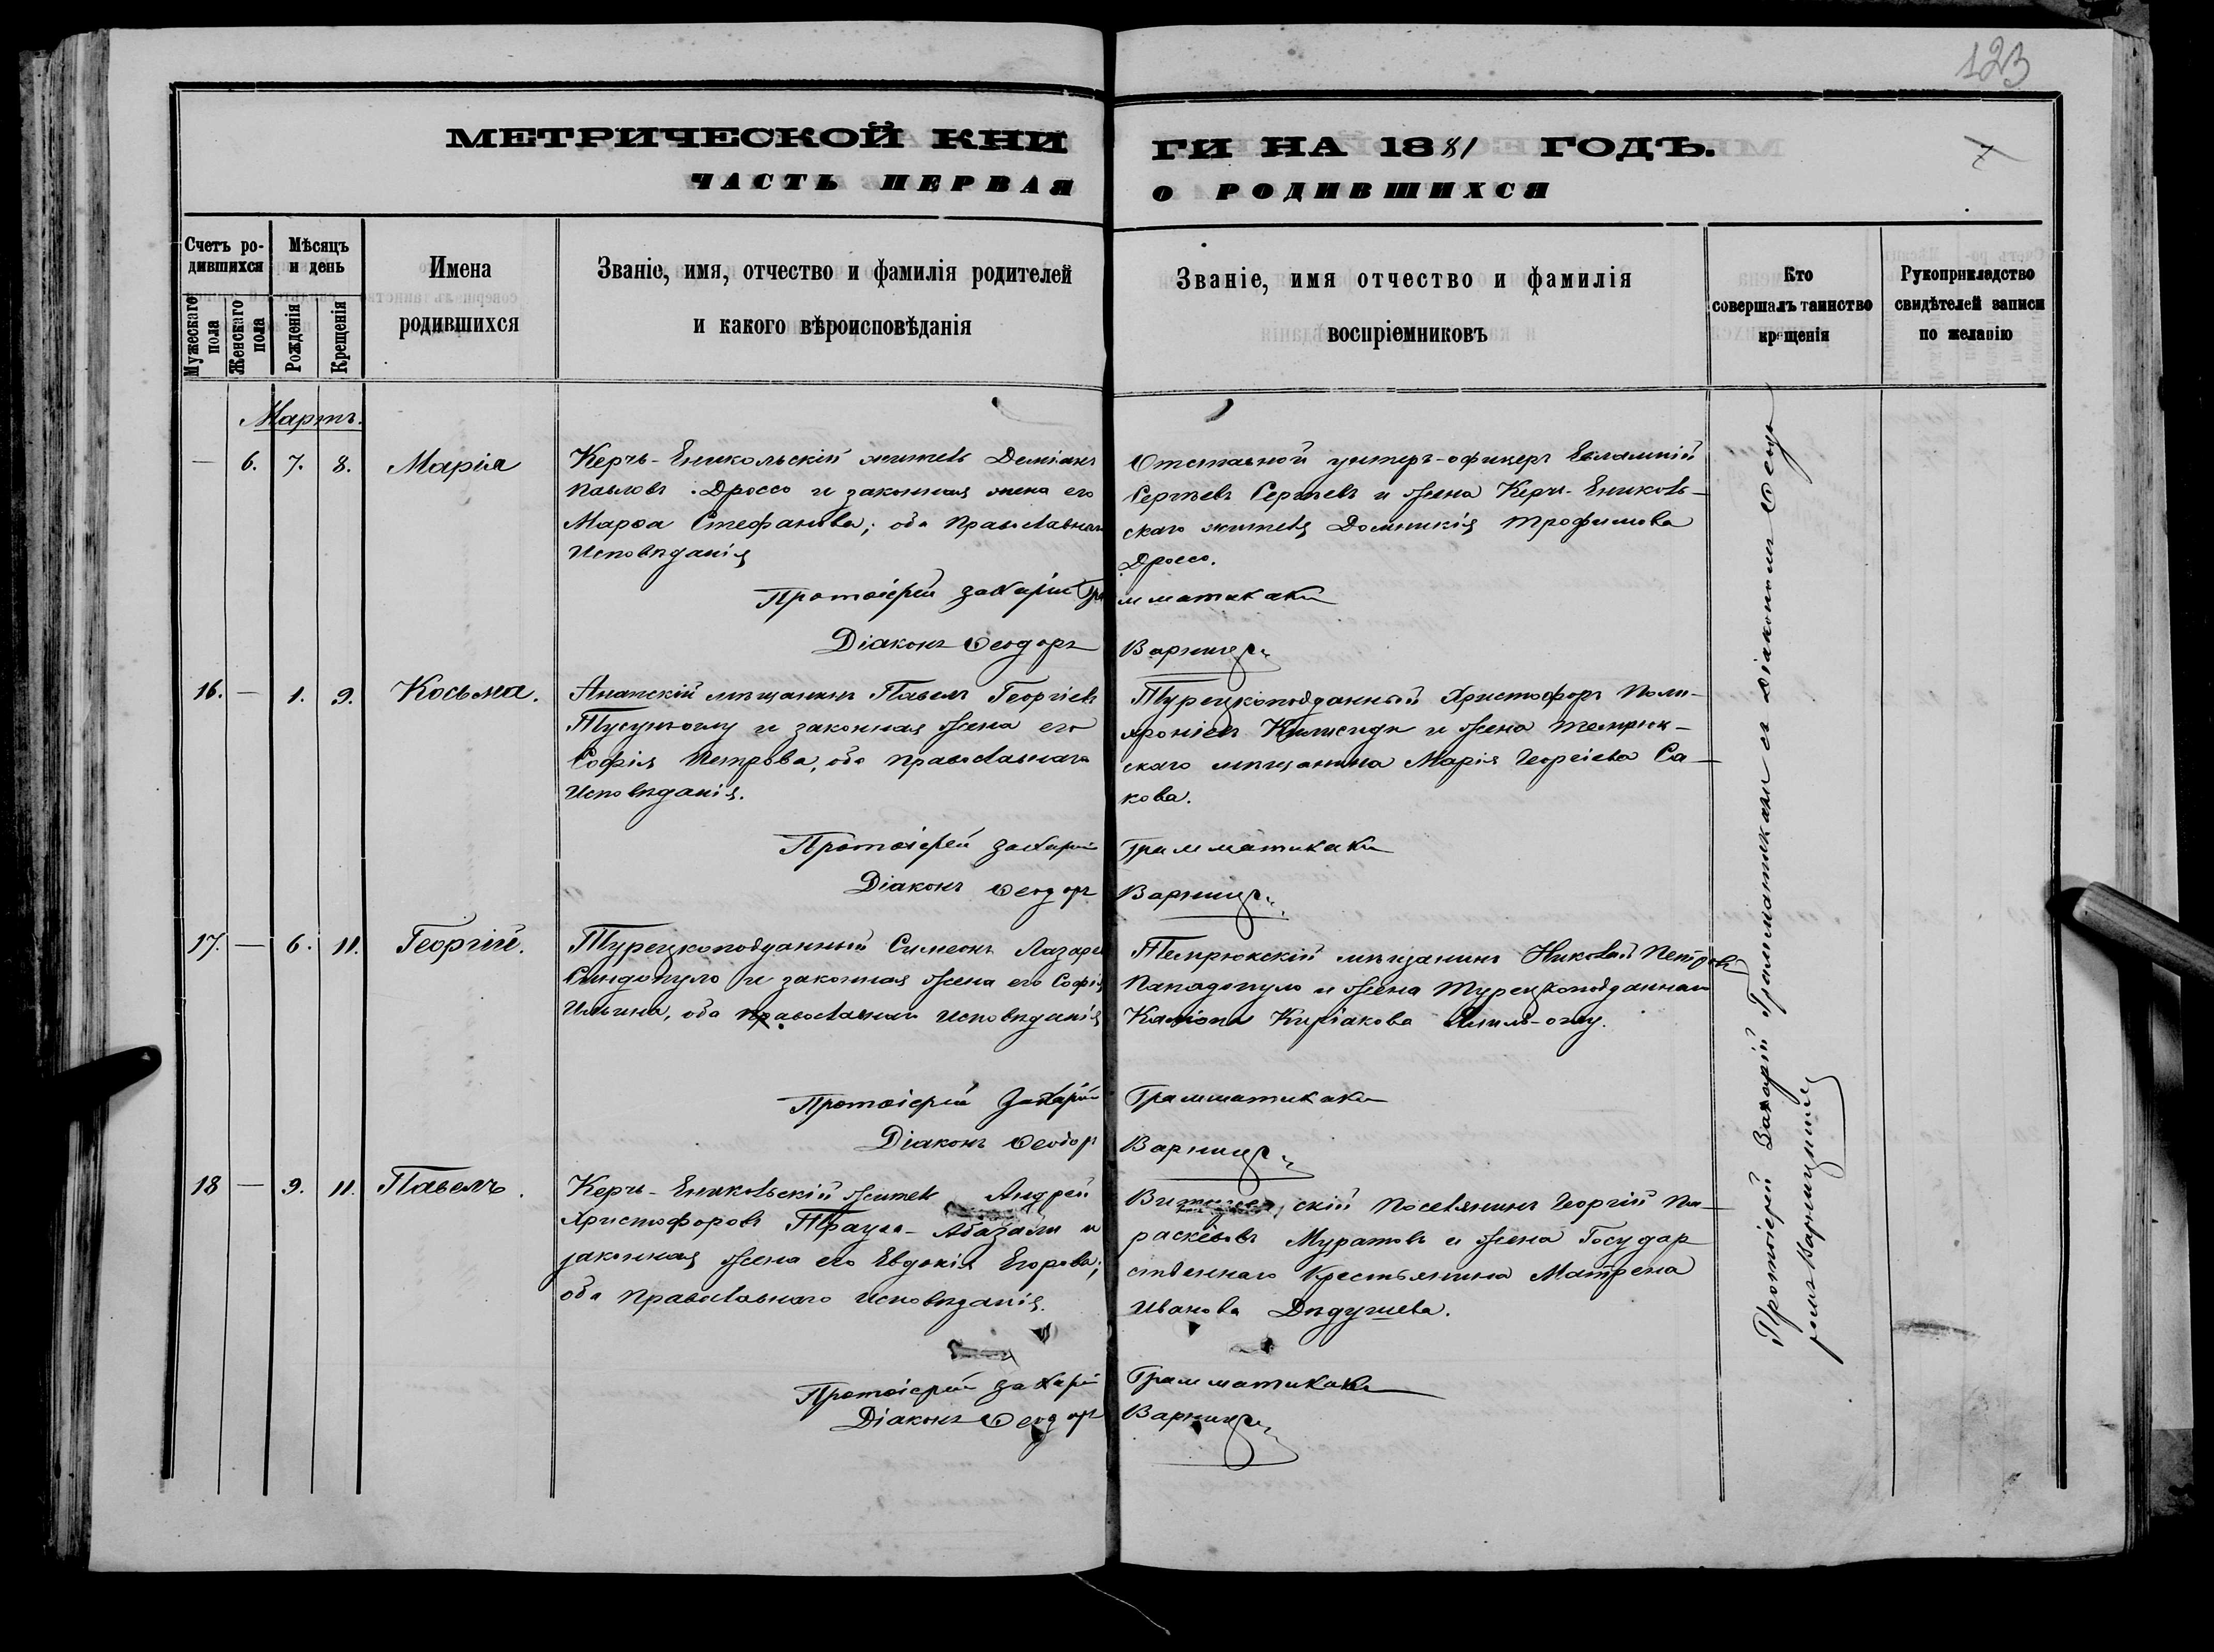 123
МЕТРИЧЕСКОЙ КНИ ГИ НА 1881 ГОДЪ.
ЧАСТЬ ПЕРВАЯ О РОДИВШИХСЯ
Счетъ ро-
дившихся
Мужескаго
пола
Женскаго
пола
Мѣсяцъ
и день
Рожденія
Крещенія
Имена
родившихся
Званіе, имя, отчество и фамилія родителей
и какого вѣроисповѣданія
Званіе, имя отчество и фамилія
воспріемниковъ
Кто
совершалъ таинство
крещенія
Рукоприкладство
свидѣтелей записи
по желанію
Мартъ.
— 6. 7. 8. Марія
Керчь-Еникольскій житель Деміанъ
Павловъ Дроссо и законная жена его
Марѳа Стефанова; оба Православнаго
Исповѣданія
Отставной унтеръ-офицеръ Евлампій
Сергѣевъ Сергѣевъ и жена Керчь-Ениколь-
скаго жителя Домникія Трофимова
Дроссо.
Протоіерей Захарій Грамматикаки
Діаконъ Ѳеодоръ Варницк
16. — 1. 9. Косьма.
Анапскій мѣщанинъ Павелъ Георгіевъ
и законная жена его
Софія Петрова, оба православнаго
Исповѣданія.
Турецкоподданный Христофоръ Поли-
хроніевъ и жена Темрюк-
скаго мѣщанина Марія Георгіева Са-
кова.
Протоіерей Захарій Грамматикаки
Діаконъ Ѳеодоръ Варницк
17. — 6. 11. Георгій.
Турецкоподданный Симеонъ Лазаре
Синдопуло и законная жена его Софія
Ильина, оба православнаго Исповѣданія
Темрюкскій мѣщанинъ Николай Петровъ
Пападопуло и жена Турецкоподданнаго
Киріакова
Протоіерей Захарій Грамматикаки
Діаконъ Ѳеодоръ Варницк
18 — 9. 11. Павелъ.
Керчь-Еникольскій житель Андрей
Христофоровъ и
законная жена его Евдокія Егорова;
оба Православнаго исповѣданія.
скій Поселянинъ Георгій Па-
раскевовъ Муратовъ и жена Государ
ственнаго Крестьянина Матрена
Иванова Дѣдушева.
Протоіерей Захарій Грамматикаки
Діаконъ Ѳеодоръ Варницк
Протоіерей Захарій Грамматикаки съ Діакономъ Ѳеодо
ромъ Варницкимъ